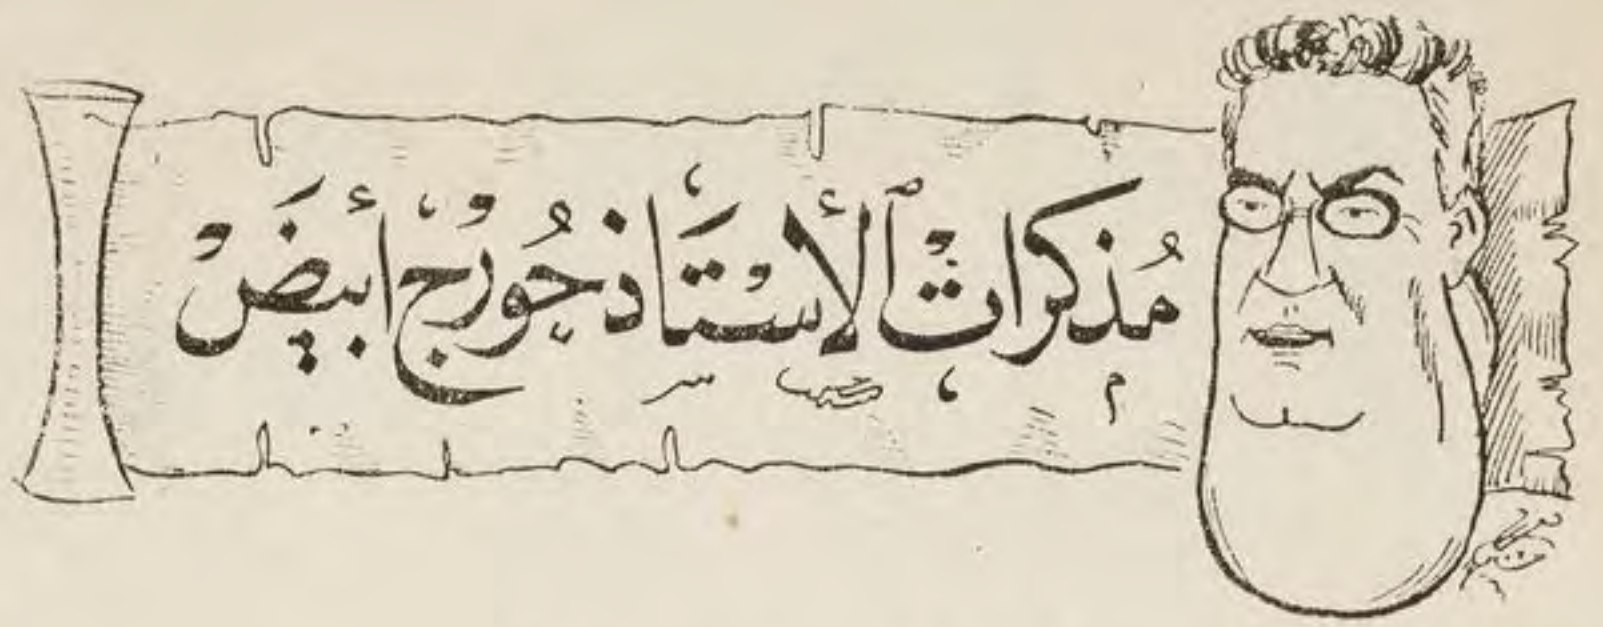 مُذكراتْ ٱلأستَاذ جُورْج أبيَضْ